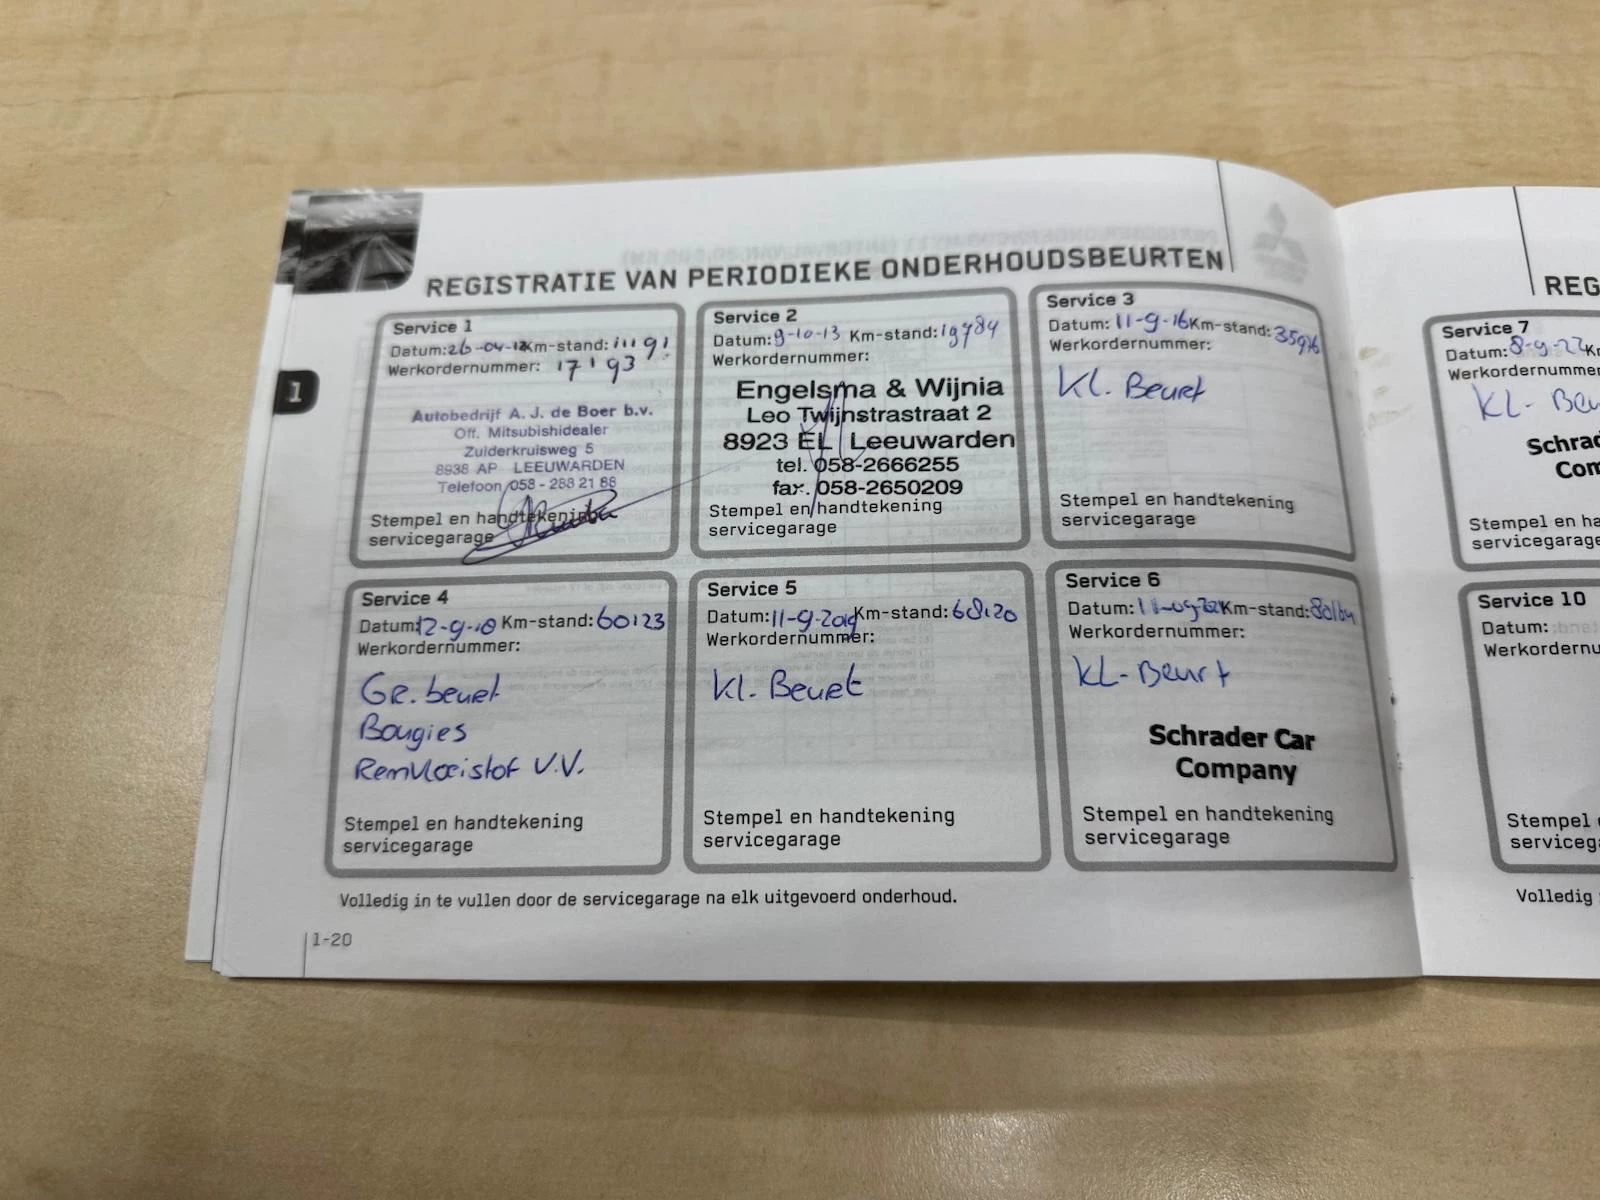 REGISTRATIE VAN PERIODIEKE ONDERHOUDSBEURTEN
Service 1
Datum: 26-04-12 Km-stand: 11191
Werkordernummer: 17193
Autobedrijf A. J. de Boer b.v.
Off. Mitsubishidealer
Zuiderkruisweg 5
8938 AP LEEUWARDEN
Telefoon 058 - 288 21 88
Stempel en handtekening
servicegarage
Service 2
Datum: 9-10-13 Km-stand: 19784
Werkordernummer:
Engelsma & Wijnia
Leo Twijnstrastraat 2
8923 EL Leeuwarden
tel. 058-2666255
fax. 058-2650209
Stempel en handtekening
servicegarage
Service 3
Datum: 11-9-16 Km-stand:
Werkordernummer:
KL. Beurt
Stempel en handtekening
servicegarage
Service 4
Datum: 12-9-18 Km-stand: 60123
Werkordernummer:
GR. beurt
Bougies
Remvloeistof V.V.
Stempel en handtekening
servicegarage
Service 5
Datum: 11-9-2019 Km-stand: 68120
Werkordernummer:
KL. Beurt
Stempel en handtekening
servicegarage
Service 6
Datum: Km-stand: 80164
Werkordernummer:
KL- Beurt
Schrader Car
Company
Stempel en handtekening
servicegarage
Volledig in te vullen door de servicegarage na elk uitgevoerd onderhoud.
1-20
1
REG
Service 7
Datum: 8-9-22 K
Werkordernummer
KL- Beu
Schrad
Com
Stempel en ha
servicegarage
Service 10
Datum:
Werkordernu
Stempel
servicega
Volledig